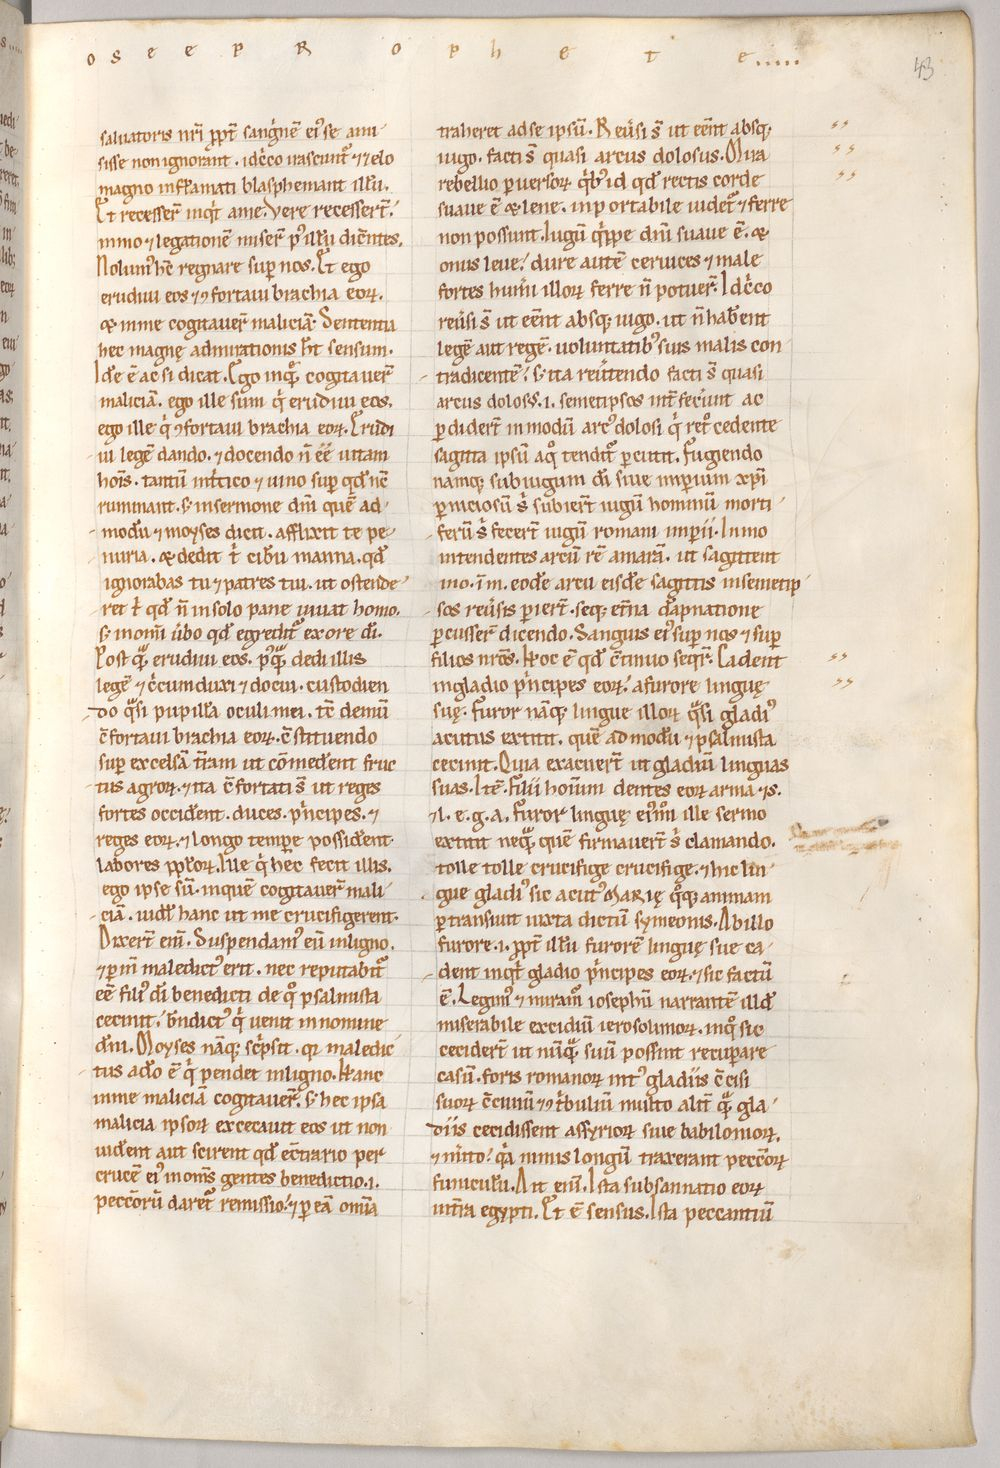 OSEE PROPHETE.....
43
saluatoris nr̄i ꝓpt̄ sangͥnē eiꝰ se ami
sisse non ignorant . idcͥco nascunt᷑ ⁊ zelo
magno inflāmati blasphemant illū.
Et recesserͭ inqͥt a me. Vere recesserͭ.
immo ⁊ legationē miserͭ pꝰ illū dicentes.
Nolumꝰ hc̄ regnare suꝑ nos. Et ego
erudiui eos ⁊ ꝯfortaui brachia eoꝝ.
& in me cogitauerͭ maliciā. Sententia
hec magnę admirationis hͭ sensum.
Id̄e ē ac si dicat. Ego inqͣ cogitauerͭ
maliciā. ego ille sum qͥ erudiui eos.
ego ille qͥ ꝯfortaui brachia eoꝝ. Erudi
ui legē dando. ⁊ docendo n̄ ēē uitam
hoīs. tantū in tͥtico ⁊ uino suꝑ qd̄ nc̄
ruminant. s; in sermone dn̄i quē ad
modū ⁊ moyses dicit. afflixit te pe
nuria. & dedit tͥ cibū manna. qd̄
ignorabas tu ⁊ patres tui. ut ostende
ret tͥ qd̄ n̄ in solo pane uiuat homo.
s; in om̄i ūbo qd̄ egredit᷑ ex ore dī.
Post qͣ erudiui eos. pꝰqͣ dedi illis
legē ⁊ cͥcumduxi ⁊ docui. custodien
do qͣsi pupillā oculi mei. tc̄ demū
c̄fortaui brachia eoꝝ. c̄stituendo
suꝑ excelsā t̄ram ut com̄ederent fruc
tus agroꝝ. ⁊ ita c̄fortati s̄ ut reges
fortes occiderent. duces. pͥncipes. ⁊
reges eoꝝ. ⁊ longo temꝑe possiderent
labores pp̄loꝝ. Ille qͥ hec feci illis.
ego ipse sū. in quē cogitauerͭ mali
ciā. uidel̄ hanc ut me crucifigerent.
Dixerͭ enī. Suspendamꝰ eū in ligno.
⁊ ꝑ in̄ maledictꝰ erit. nec reputabit᷑
ēē filiꝰ dī benedicti de qͦ psalmista
cecinit. bn̄dictꝰ qͥ uenit in nomine
dn̄i. Moyses nāq; scͥpsit. qꝛ maledic
tus a dō ē qͥ pendet in ligno. Hanc
in me maliciā cogitauerͭ. s; hec ipsa
malicia ipsoꝝ excecauit eos ut non
uiderent aut scirent qd̄ ec̄trario per
crucē eiꝰ in om̄s gentes benedictio .i.
peccͦorū daret᷑ remissio. ⁊ ꝑ eā omīa
traheret ad se ipsū. Reūsi s̄ ut ēēnt absq;
iugo. facti s̄ quasi arcus dolosus. Mira
rebellio ꝑuersoꝝ qͥbꝰ id qd̄ rectis corde
suaue ē & lene. inportabile uidet᷑ ⁊ ferre
non possunt. Iugū qͥppe dn̄i suaue ē. &
onus leue. dure autē ceruices ⁊ male
fortes humī illoꝝ ferre n̄ potuerͭ. Idcͥco
reūsi s̄ ut ēēnt absq; iugo. ut n̄ haberent
legē aut regē. uoluntatibꝰ suis malis con
tradicentē. s; ita reūtendo facti s̄ quasi
arcus dolosꝰ .i. semetipsos inͭfecerunt ac
ꝑdiderͭ in modū arcꝰ dolosi qͥ retͦ cedente
sagitta ipsū a qͦ tendit᷑ ꝑcutit. Fugiendo
namq; sub iugum dī siue imperium xp̄i
ꝑniciosū sͥ subierͭ iugū hominū morti
ferū sͥ fecerͭ iugū romani imperii. Immo
intendentes arcū rē amarā. ut sagittent
in o. īm. eode arcu eisde sagittis in semetip
sos reūsis ꝑierͭ. seq; et̄na dāpnatione
ꝑcusserͭ dicendo. Sanguis eiꝰ suꝑ nos ⁊ suꝑ
filios nr̄os. Hoc ē qd̄ c̄tinuo seqͥt᷑. Cadent
in gladio pͥncipes eoꝝ. a furore linguę
suę. Furor nāq; lingue illoꝝ qͣsi gladiꝰ
acutus extitit. quē ad modū ⁊ psalmista
cecinit. Quia exacuerͭ ut gladiū linguas
suas. Itē. Filii hoīum dentes eoꝝ arma ⁊ s.
⁊ l. e. g. a. Furor linguę eiꝰm̄i ille sermo
extitit neqͣ quē firmauerͭ sͥ clamando.
tolle tolle crucifige crucifige. ⁊ hic lin
gue gladiꝰ sic acutꝰ MARIĘ qͦq; animam
ꝑtransiuit iuxta dictū symeonis. Ab illo
furore .i. ꝓpt̄ illū furorē linguę sue ca
dent inqͥt gladio pͥncipes eoꝝ. ⁊ sic factū
ē. Legimꝰ ⁊ miramͬ iosephū narrantē illd̄
miserabile excidiū ierosolimoꝝ. in qͦ sic
ceciderͭ ut nūqͣ suū possint recuꝑare
casū. foris romanoꝝ intꝰ gladiis c̄cisi
suoꝝ c̄ciuiū ⁊ ꝯtͥbuliū multo alit̄ qͣ gla
diis cecidissent assyrioꝝ siue babilonioꝝ.
⁊ mͥito. qͥa nimis longū traxerant peccͦoꝝ
funiculū. Ait enī. Ista subsannatio eoꝝ
in t̄ra egypti. Et ē sensus. Ista peccantiū